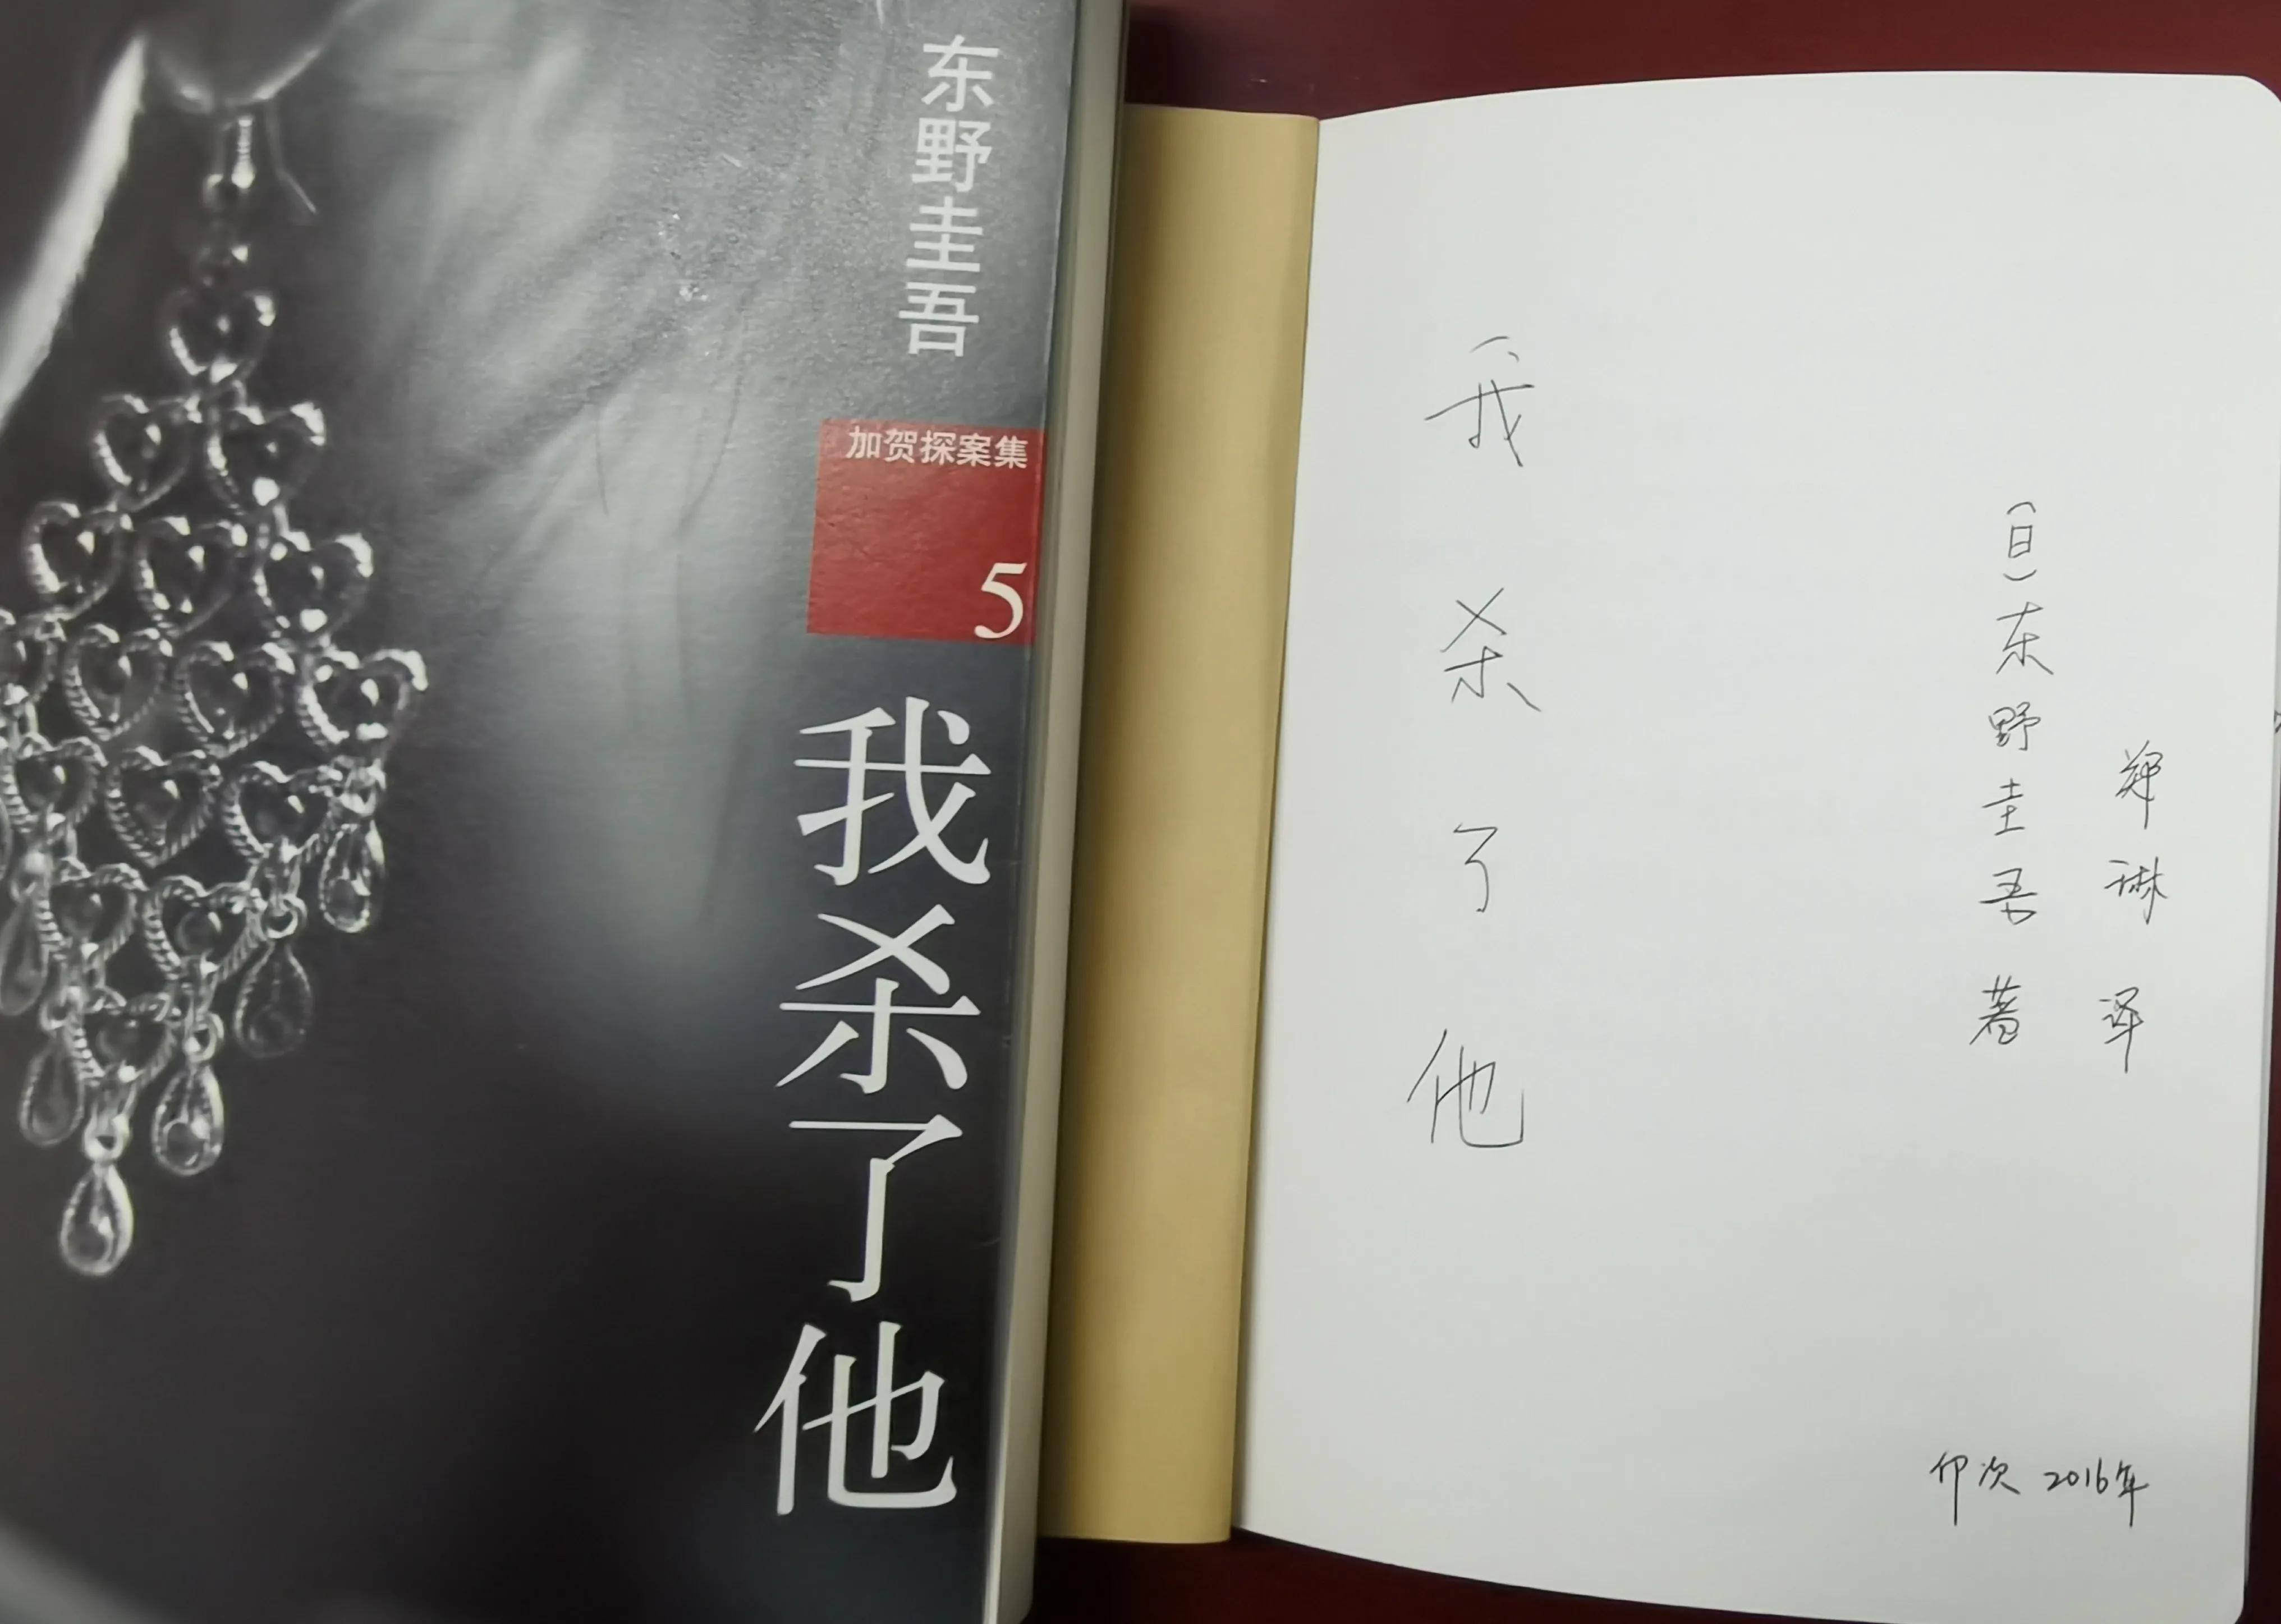 东野圭吾
加贺探案集
5
我杀了他
我杀了他
(日)东野圭吾 著
郑琳 译
印次 2016年